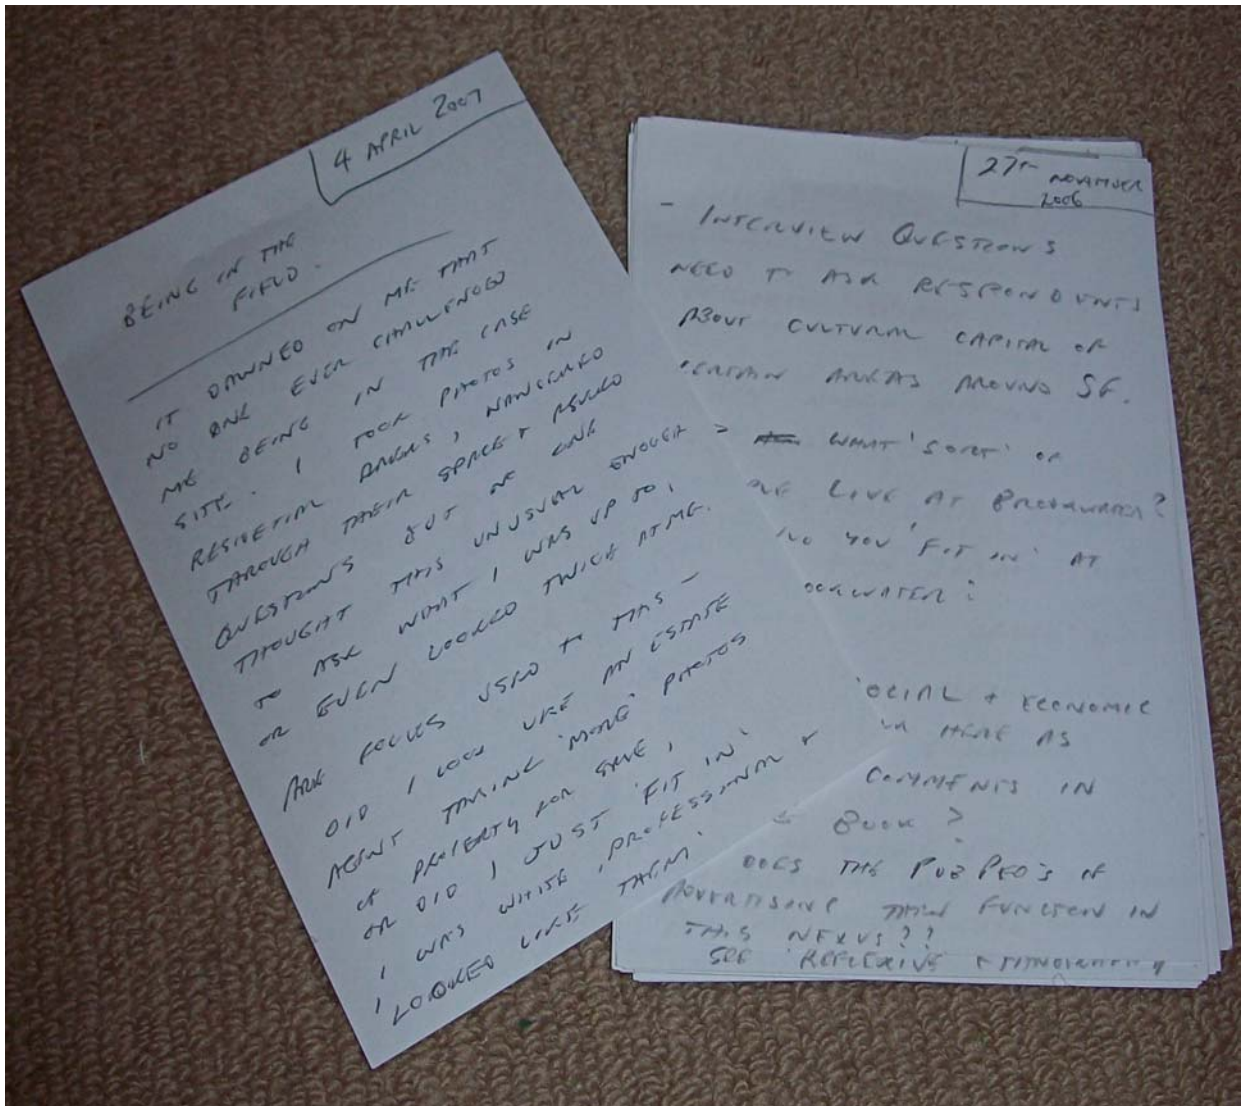 4 APRIL 2007
BEING IN THE
FIELD.
IT DAWNED ON ME THAT
NO ONE EVER CHALLENGED
ME BEING IN THE CASE
SITE. I TOOK PHOTOS IN
RESIDETIAL AREAS, WANDERED
THROUGH THEIR SPACE & ASKED
QUESTIONS BUT NO ONE
THOUGHT THIS UNUSUAL ENOUGH
TO ASK WHAT I WAS UP TO,
OR EVEN LOOKED TWICE AT ME.
ARE FOLKS USED TO THIS –
DID I LOOK LIKE AN ESTATE
AGENT TAKING 'MORE' PHOTOS
OF PROPERTY FOR SALE,
OR DID I JUST 'FIT IN'
I WAS WHITE, PROFESSIONAL &
I LOOKED LIKE THEM.
27TH NOVEMBER
2006
- INTERVIEW QUESTIONS
NEED TO ASK RESPONDENTS
ABOUT CULTURAL CAPITAL OF
CERTAIN AREAS AROUND SE.
> WHAT 'SORT' OF
LIVE AT BROOKWATER?
YOU 'FIT IN' AT
OOKWATER?
OCIAL + ECONOMIC
HERE AS
COMMENTS IN
BOOK?
DOES THE PUB PED'S OF
ADVERTISING THEN FUNCTION IN
THIS NEXUS??
SEE 'REFLEXIVE